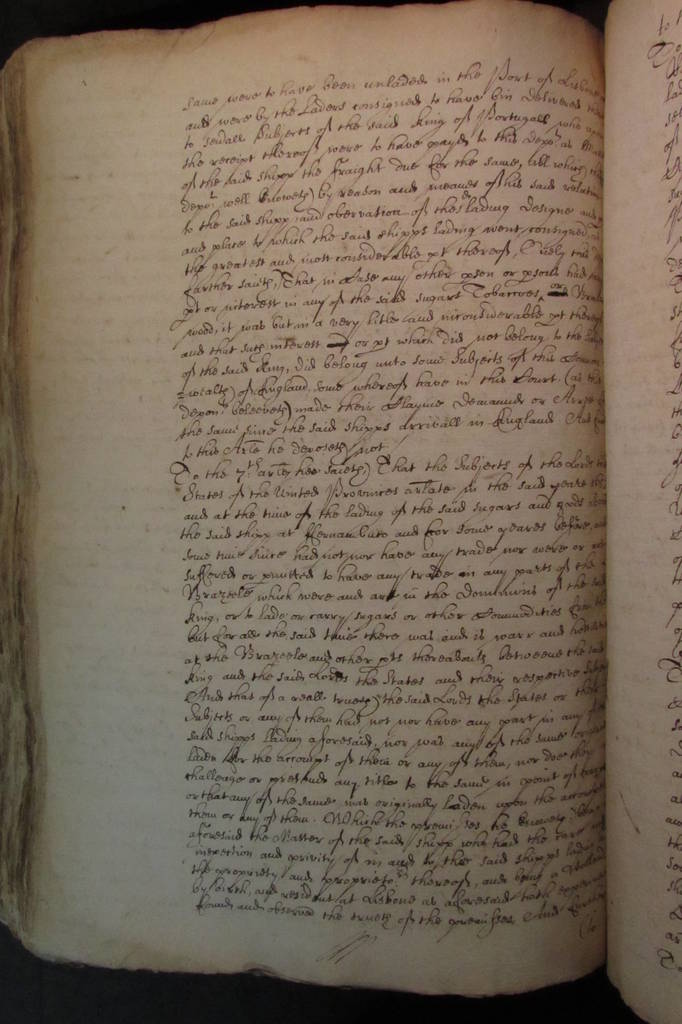 same were to have been unladed in the Port of Lisbone
and were by the Laders consigned to have bin delivered
to sevall Subjects of the said King of Portugall who
the receipt thereof were to have payed to this Depo.t as
of the said shipp the fraight due for the same, all which
depo.t well knoweth by reason and meanes of his said relation
to the said shipp, and obervation of the lading Designe and
and place to which the said shipps lading went consigned,
the greatest and most considerable pt thereof, Onely this
farther saieth, That in Case any other pson or psons had
pt or interest in any of the said sugars Tobaccoes or
wood, it was but in a very litle and inconsiderable pt thereof
and that such interest or pt which did not belong to the
of the said King, did belong unto some Subjects of this
=wealth of England, some whereof have in this Court (as this
Depon.t beleeveth) made their Clayme Demaund or
the same since the said shipps arrivall in England And
to this Arle he deposeth not
To the 7.th arle hee saieth, That the Subjects of the Lords the
States of the United Provinces arlate in the said yeare
and at the time of the lading of the said sugars and goods
the said shipp at ffernambuco and for some yeares before, and
some time since had not nor have any trade nor were or
suffered or pmitted to have any trade in any parts of the
Brazeele which were and are in the Dominions of the said
King, or to lade or carry sugars or other Commodities
but for all the said time there was and is warr and
at the Brazeele and other pts thereabouts betweene the said
King and the said Lords the States and their respective
And that of a reall trueth the said Lords the States or their
Subjects or any of them had not nor have any part in any
said shipps lading aforesaid, nor was any of the same
laden for the accompt of them or any of them, nor doe they
challenge or pretend any title to the same in point of
or that any of the same was originally laden upon the accompt
them or any of them. Which the premisses he knoweth
aforesaid the Master of the said shipp who had the
inspection and privity of in and to the said shipps lading
the propriety and proprieto.rs thereof, and being a
by birth, and resident at Lisbone as aforesaid hath
found and observed the trueth of the premisses And